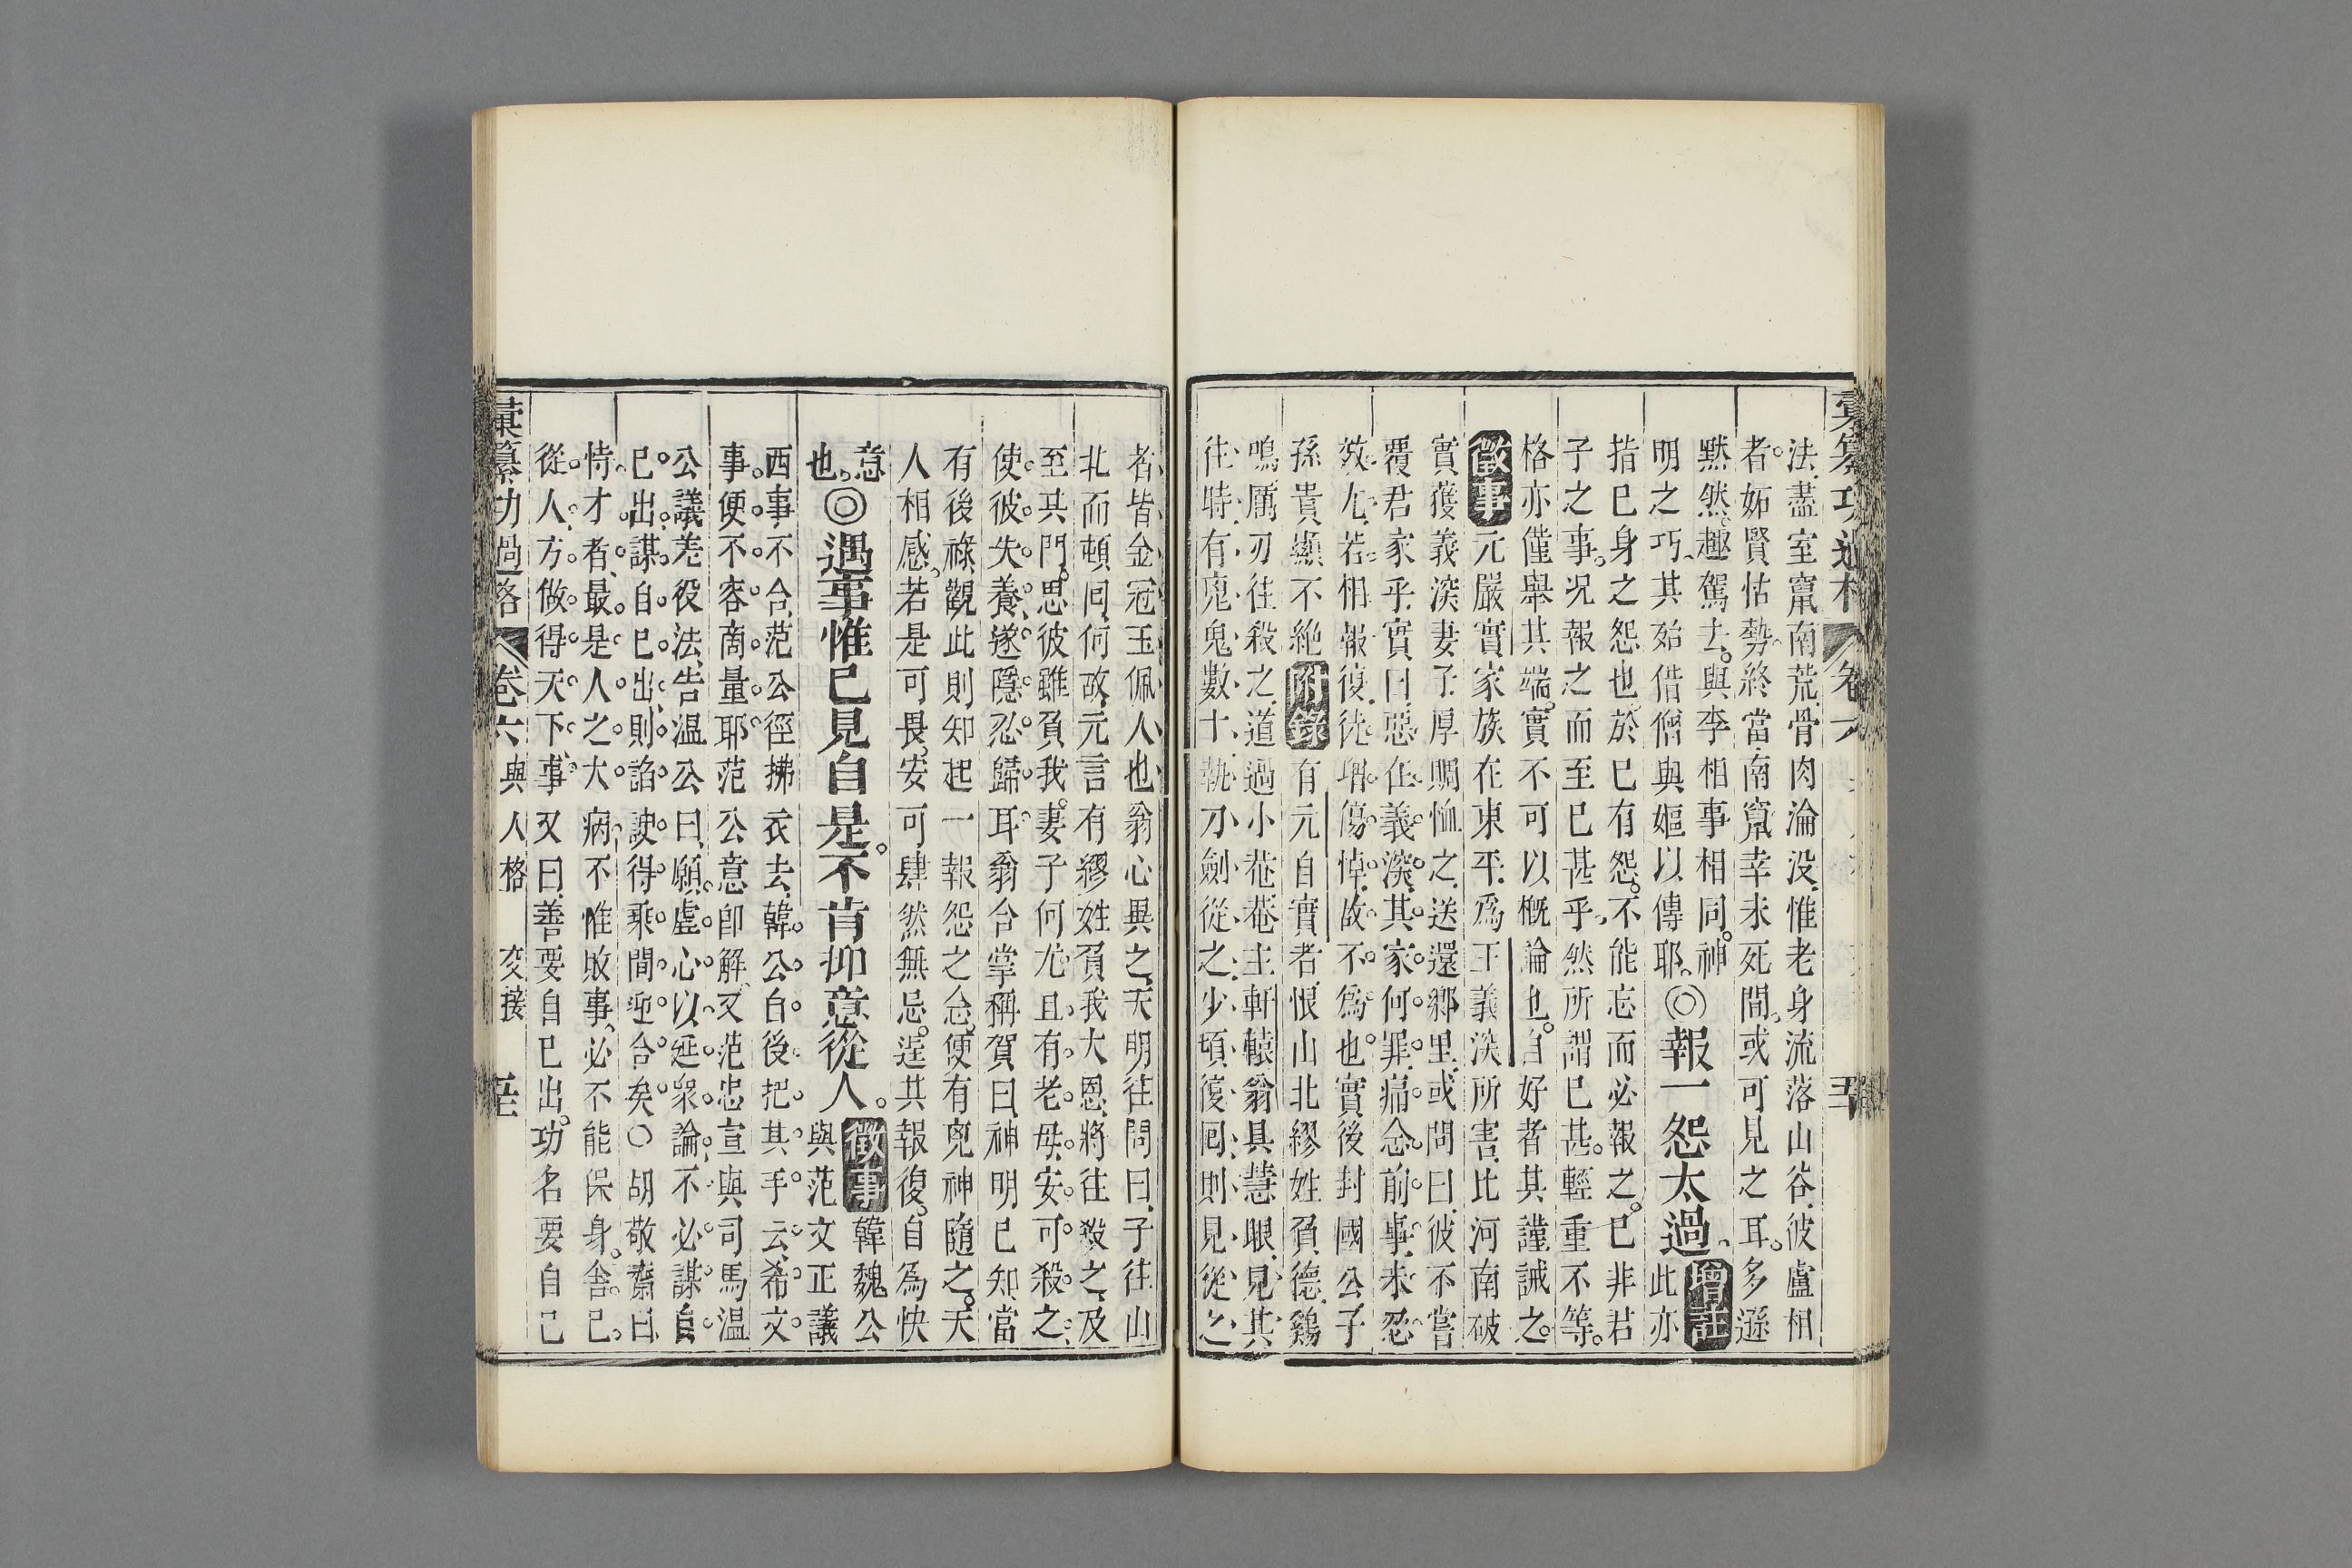 彚纂功過格 卷六
法盡室竄南荒骨肉淪没惟老身流落山谷彼盧相
者妬賢怙勢終當南竄幸未死間或可見之耳多遜
默然趣駕去與李相事相同神
明之巧其殆借僧與嫗以傳耶◎報一怨太過增註此亦
指已身之怨也於已有怨不能忘而必報之已非君
子之事况報之而至已甚乎然所謂已甚輕重不等
格亦僅舉其端實不可以概論也自好者其謹誡之
徵事元嚴實家族在東平爲王義深所害比河南破
實獲義深妻子厚賙恤之送還鄉里或問曰彼不嘗
覆君家乎實曰惡在義深其家何罪痛念前事未忍
效尤若相報復徒增傷悼故不爲也實後封國公子
孫貴顯不絶附錄有元自實者恨山北繆姓負德鷄
鳴厲刃往殺之道過小菴菴主軒轅翁具慧眼見其
往時有鬼數十執刀劍從之少頃復囘則見從之
者皆金冠玉佩人也翁心異之天明往問曰子往山
北而頓囘何故元言有繆姓負我大恩將往殺之及
至其門思彼雖負我妻子何尤且有老母安可殺之
使彼失養遂隱忍歸耳翁合掌稱賀曰神明已知當
有後祿觀此則知起一報怨之念便有鬼神隨之天
人相感若是可畏安可肆然無忌逞其報復自爲快
意
也◎遇事惟已見自是不肯抑意從人徵事韓魏公
與范文正議
西事不合范公徑拂衣去韓公自後把其手云希文
事便不容商量耶范公意卽解又范忠宣與司馬温
公議差役法告温公曰願虛心以延衆論不必謀自
已出謀自已出則諂諛得乘間迎合矣○胡敬齋曰
恃才者最是人之大病不惟敗事必不能保身舍已
從人方做得天下事又曰善要自已出功名要自已
彚纂功過格 卷六 與人格 交接